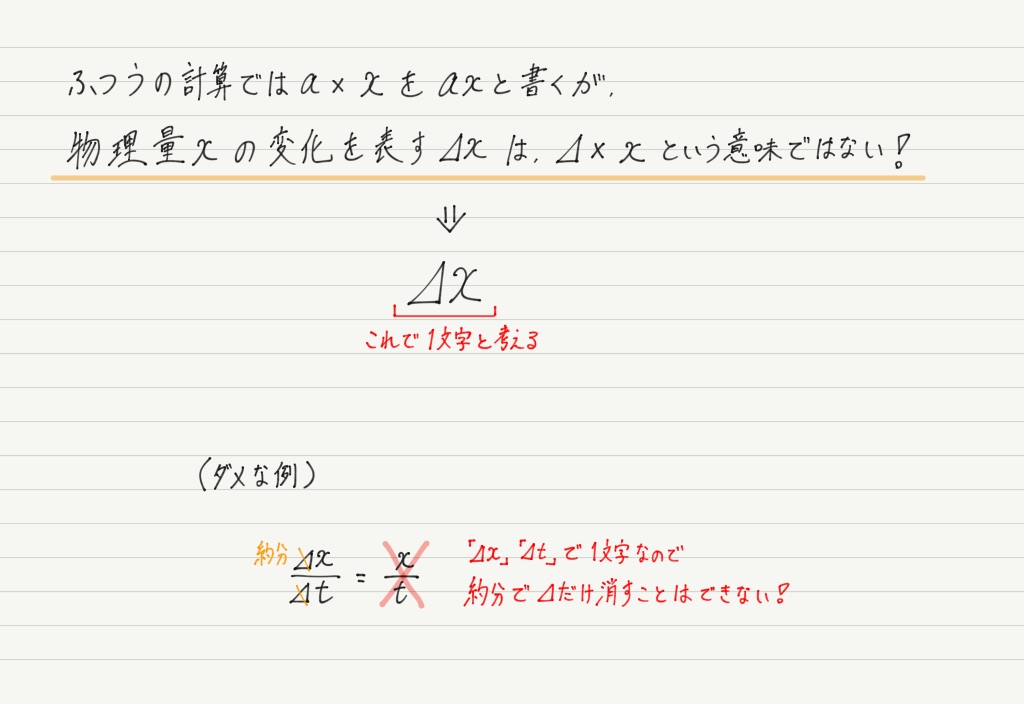 ふつうの計算では a × x を ax と書くが,
物理量 x の変化を表す Δx は, Δ × x という意味ではない!
⇓
Δx
これで1文字と考える
(ダメな例)
約分 Δx/Δt = x/t
「Δx」「Δt」で1文字なので
約分でΔだけ消すことはできない!